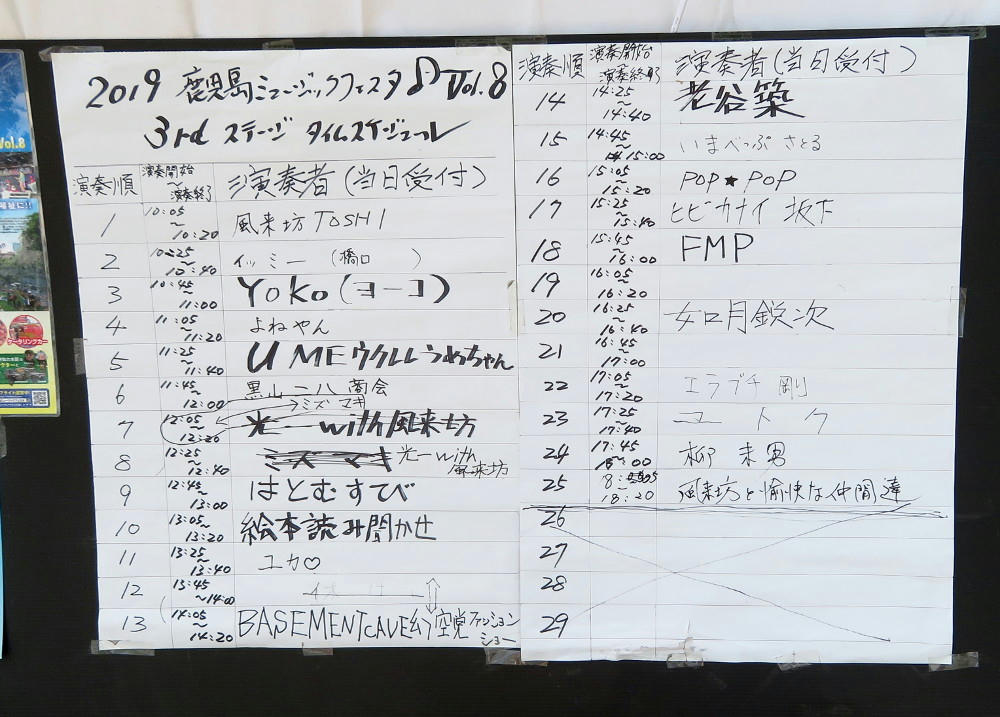 2019 鹿児島ミュージックフェスタ Vol.8
3rd ステージ タイムスケジュール
演奏順 演奏開始〜演奏終了 演奏者(当日受付)
1 10:05〜10:20 風来坊TOSHI
2 10:25〜10:40 イッミー (橋口 )
3 10:45〜11:00 YoKo(ヨーコ)
4 11:05〜11:20 よねやん
5 11:25〜11:40 UMEウクレレうめちゃん
6 11:45〜12:00 黒山二八商会
→ミズマキ
7 12:05〜12:20 光一with風来坊
8 12:25〜12:40 ミズマキ 光一with風来坊
9 12:45〜13:00 はとむすび
10 13:05〜13:20 絵本読み聞かせ
11 13:25〜13:40 ユカ♡
12 13:45〜14:00
13 14:05〜14:20 BASEMENTCAVE 空党ファンションショー
演奏順 演奏開始〜演奏終了 演奏者(当日受付)
14 14:25〜14:40 老谷築
15 14:45〜15:00 いまべっぷ さとる
16 15:05〜15:20 POP★POP
17 15:25〜15:40 ヒビカナイ 坂下
18 15:45〜16:00 FMP
19 16:05〜16:20
20 16:25〜16:40 如月鋭次
21 16:45〜17:00
22 17:05〜17:20 エラブチ 剛
23 17:25〜17:40 ユートク
24 17:45〜18:00 柳 未男
25 18:05〜18:20 風来坊と愉快な仲間達
26
27
28
29
Vol.8